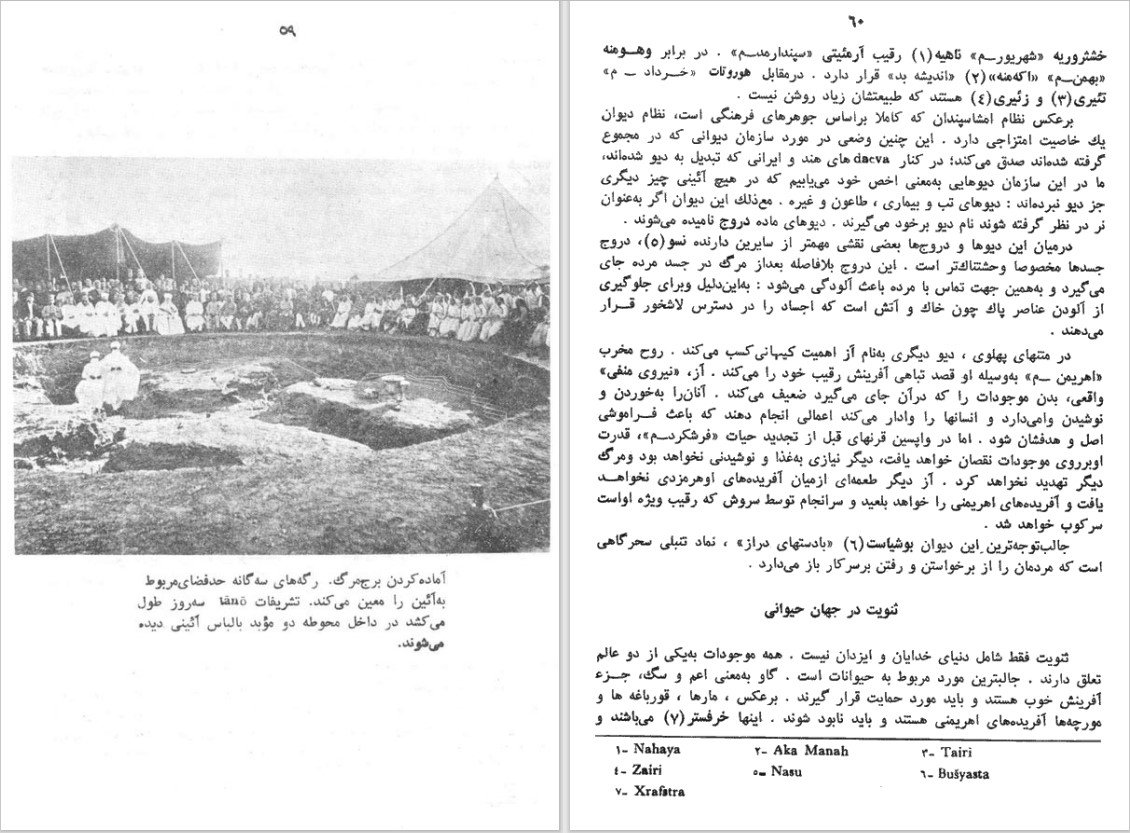 ٥٩
آماده‌کردن برج‌مرگ. رگه‌های سه‌گانه حدفضای‌مربوط
به‌آئین را معین می‌کند. تشریفات tânô سه‌روز طول
می‌کشد در داخل محوطه دو مؤبد بالباس آئینی دیده
می‌شوند.
٦٠
خششروریه «شهریورـم» ناهیه(۱) رقیب آرمئیتی «سپندارمدـم» . در برابر وهـومنه
«بهمن‌ـم» «اکه‌منه» (۲) «اندیشه بد» قرار دارد . درمقابل هوروتات «خـرداد ـ م»
تئیری(۳) و زئیری(٤) هستند که طبیعتشان زیاد روشن نیست .
برعکس نظام امشاسپندان که کاملا براساس جوهرهای فرهنگی است، نظام دیوان
یك خاصیت امتزاجی دارد . این چنین وضعی در مورد سازمان دیوانی که در مجموع
گرفته شده‌اند صدق می‌کند؛ در کنار daeva های هند و ایرانی که تبدیل به دیو شده‌اند،
ما در این سازمان دیوهایی به‌معنی اخص خود می‌یابیم که در هیچ آئینی چیز دیگری
جز دیو نبرده‌اند : دیوهای تب و بیماری ، طاعون و غیره . مع‌ذلك این دیوان اگر به‌عنوان
نر در نظر گرفته شوند نام دیو برخود می‌گیرند . دیوهای ماده دروج نامیده می‌شوند .
درمیان این دیوها و دروج‌ها بعضی نقشی مهمتر از سایرین دارنده نسو(٥)، دروج
جسدها مخصوصا وحشتناك‌تر است . این دروج بلافاصله بعداز مرگ در جسد مرده جای
می‌گیرد و به‌همین جهت تماس با مرده باعث آلودگی می‌شود : به‌این‌دلیل وبرای جلوگیری
از آلودن عناصر پاك چون خاك و آتش است که اجساد را در دسترس لاشخور قـرار
می‌دهند .
در متنهای پهلوی ، دیو دیگری به‌نام آز اهمیت کیهانی‌کسب می‌کند . روح مخرب
«اهریمن ـم» به‌وسیله او قصد تباهی آفرینش رقیب خود را می‌کند . آز، «نیروی منفی»
واقعی، بدن موجودات را که درآن جای می‌گیرد ضعیف می‌کند . آنان‌را به‌خوردن و
نوشیدن وامی‌دارد و انسانها را وادار می‌کند اعمالی انجام دهند که باعث فراموشی
اصل و هدفشان شود . اما در واپسین قرنهای قبل از تجدید حیات «فرشکردـم»، قدرت
اوبرروی موجودات نقصان خواهد یافت، دیگر نیازی به‌غذا و نوشیدنی نخواهد بود ومرگ
دیگر تهدید نخواهد کرد . آز دیگر طعمه‌ای ازمیان آفریده‌های اوهرمزدی نخواهـد
یافت و آفریده‌های اهریمنی را خواهد بلعید و سرانجام توسط سروش که رقیب ویژه اواست
سرکوب خواهد شد .
جالب‌توجه‌ترین این دیوان بوشیاست(٦) «بادستهای دراز» ، نماد تنبلی سحرگاهی
است که مردمان را از برخواستن و رفتن برسرکار باز می‌دارد .
ثنویت در جهان حیوانی
ثنویت فقط شامل دنیای خدایان و ایزدان نیست . همه موجودات به‌یکی از دو عالم
تعلق دارند . جالبترین مورد مربوط به حیوانات است . گاو به‌معنی اعم و سگ، جـزء
آفرینش خوب هستند و باید مورد حمایت قرار گیرند . برعکس ، مارها ، قورباغه ها و
مورچه‌ها آفریده‌های اهریمنی هستند و باید نابود شوند . اینها خرفستر(۷) می‌باشند و
۱- Nahaya ۲- Aka Manah ۳- Tairi
٤- Zairi ٥- Nasu ٦- Bušyasta
۷- Xrafstra